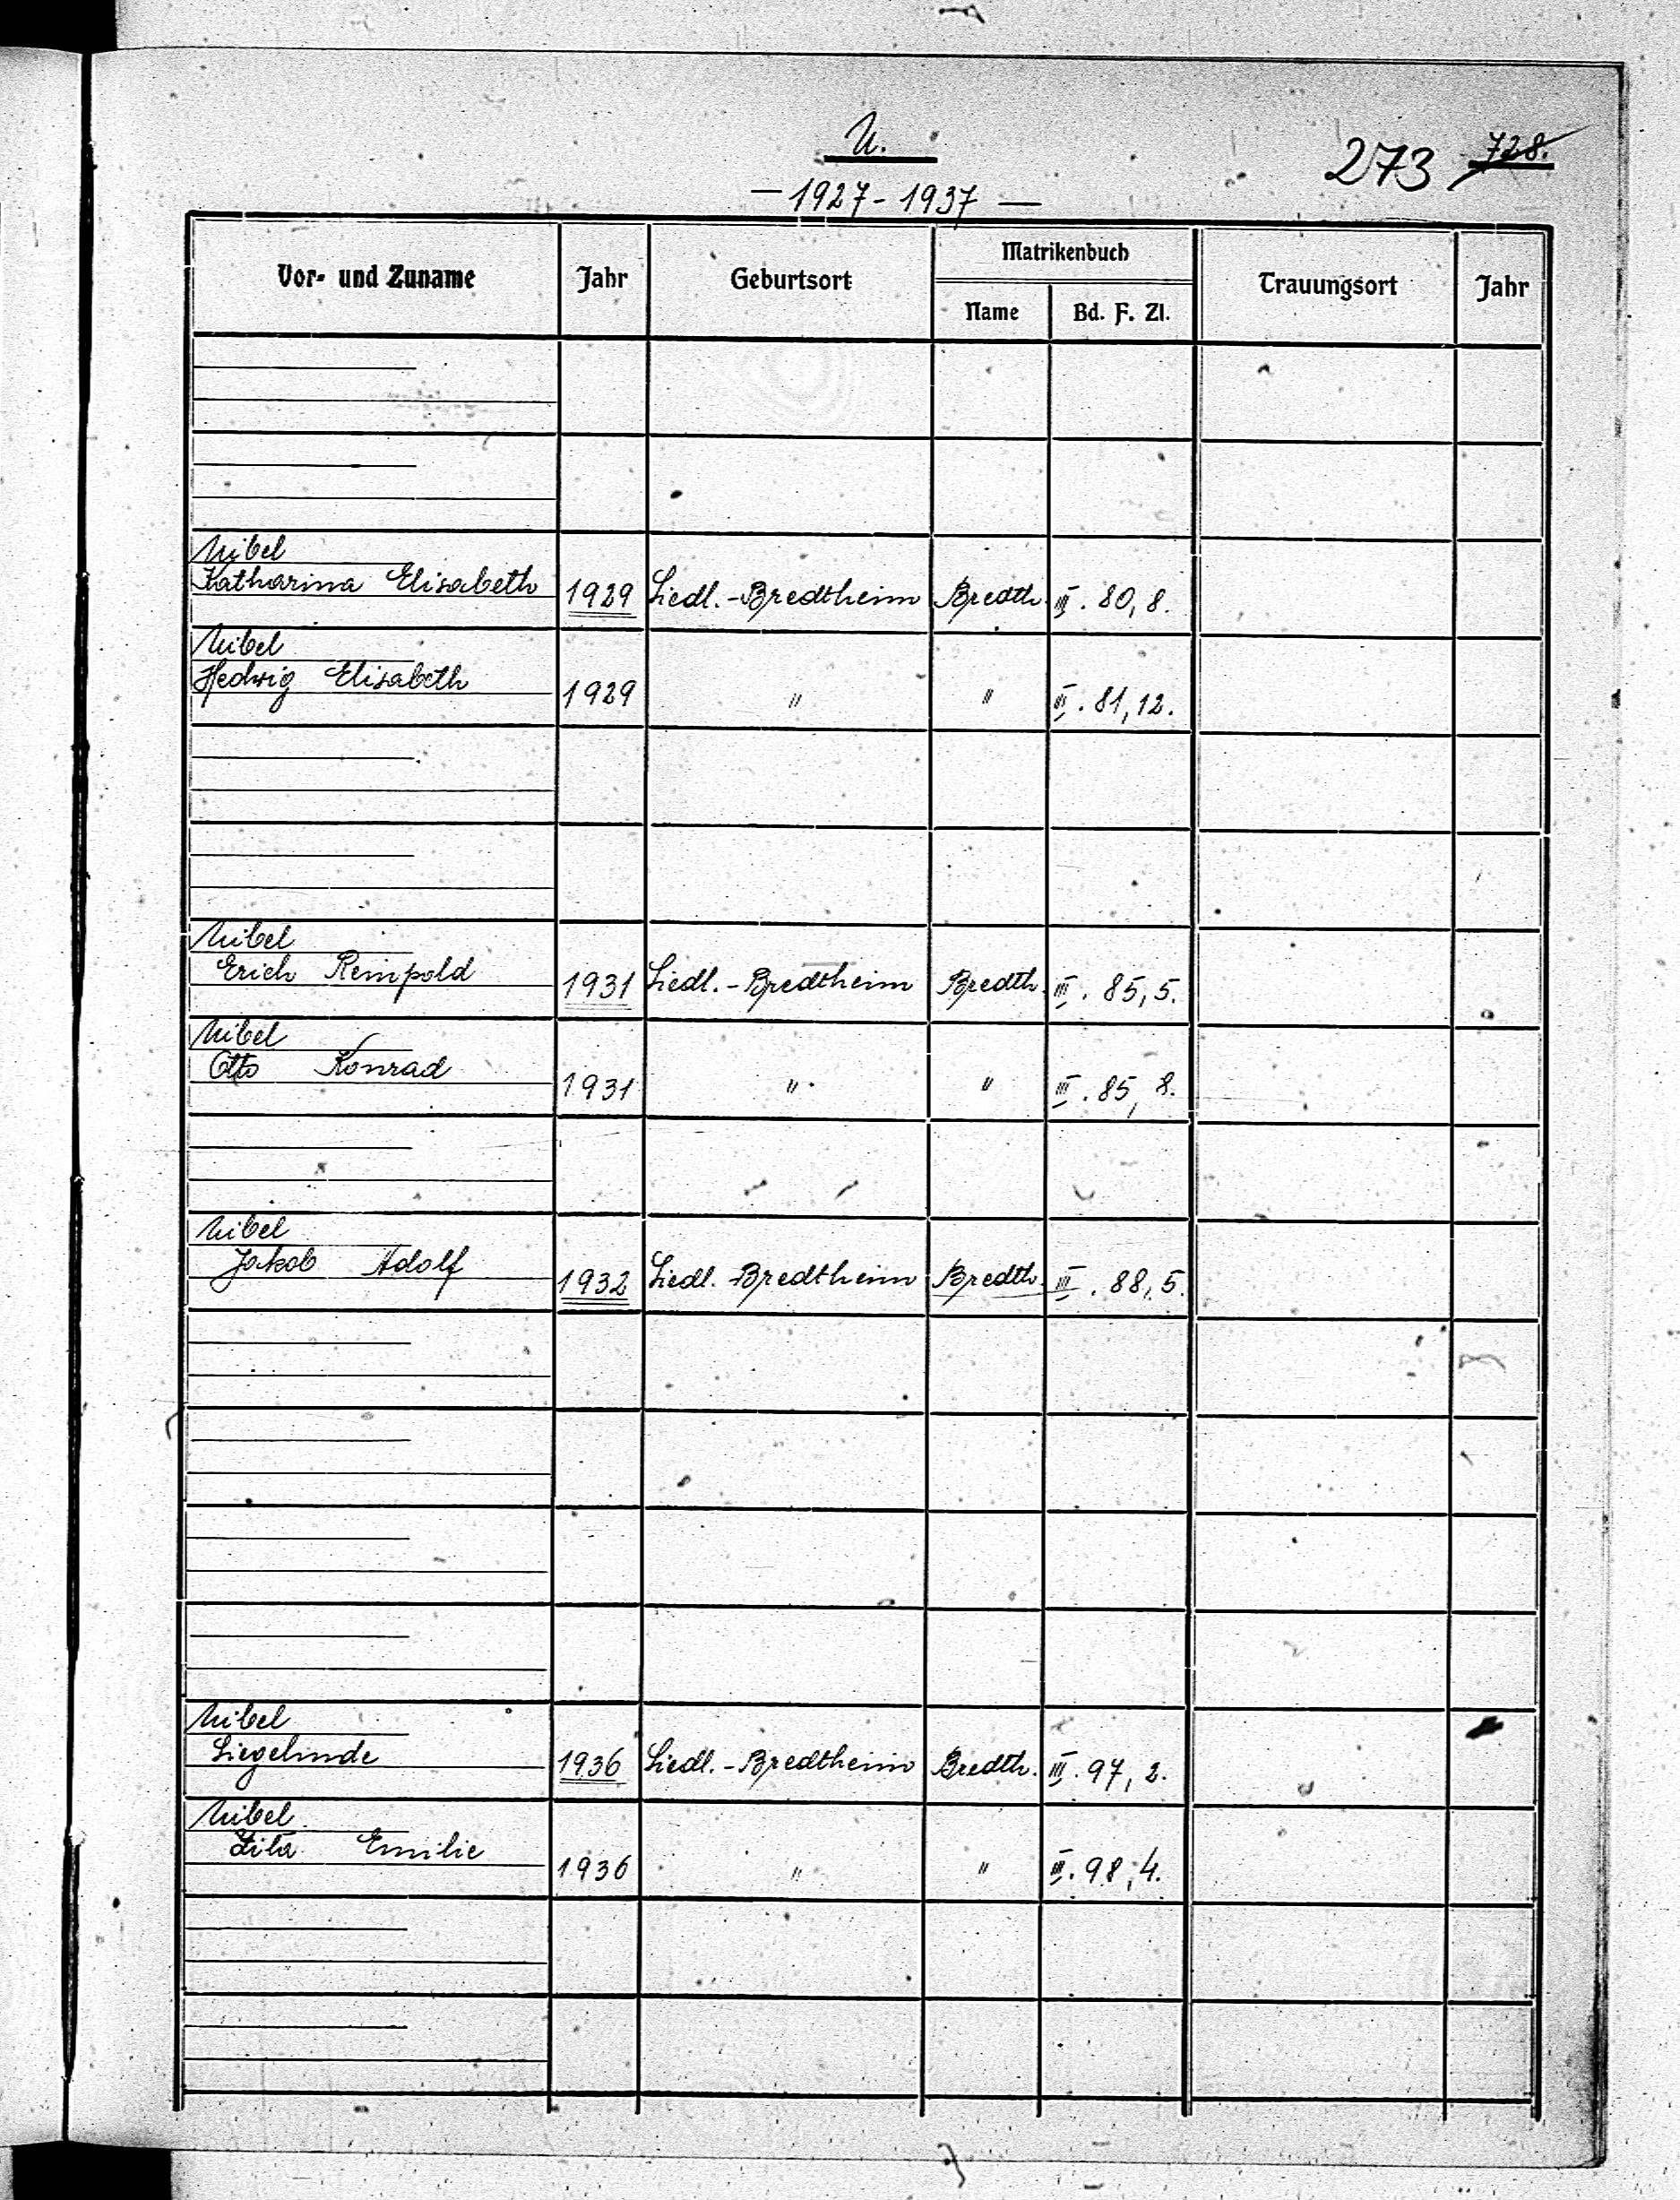 U.
273 728.
— 1927 - 1937 —
Vor- und Zuname Jahr Geburtsort Matrikenbuch Trauungsort Jahr
Name Bd. F. Zl.
Uibel
Katharina Elisabeth 1929 Siedl.-Bredtheim Bredth. III. 80, 8.
Uibel
Hedwig Elisabeth 1929 " " III. 81, 12.
Uibel
Erich Reinpold 1931 Siedl.-Bredtheim Bredth. III. 85, 5.
Uibel
Otto Konrad 1931 " " III. 85, 8.
Uibel
Jakob Adolf 1932 Siedl. Bredtheim Bredth. III. 88, 5.
Uibel
Siegelinde 1936 Siedl.-Bredtheim Bredth. III. 97, 2.
Uibel
Zita Emilie 1936 " " III. 98, 4.